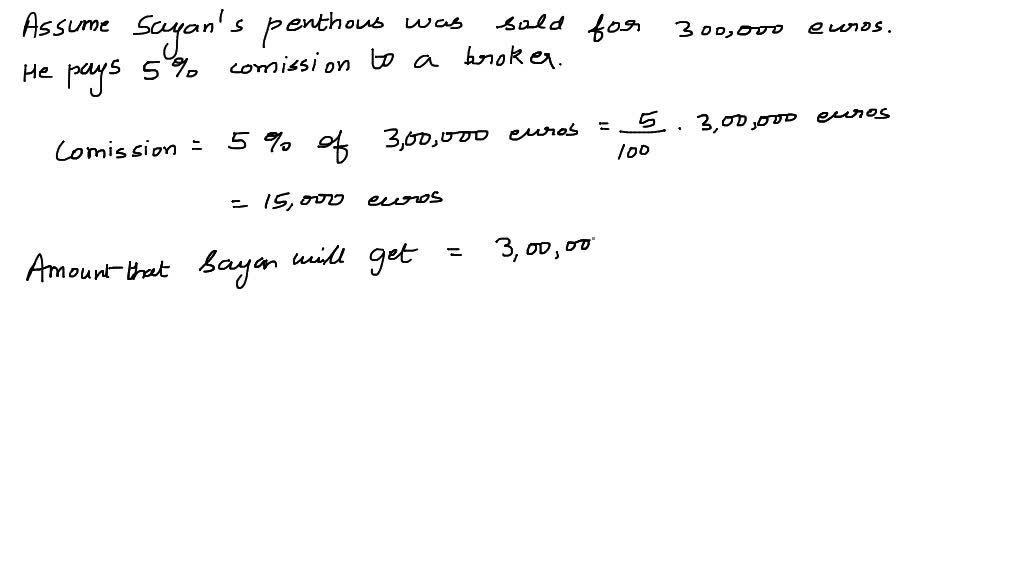 Assume Sayan's penthous was sold for 300,000 euros.
He pays 5% comission to a broker.
Comission = 5 % of 3,00,000 euros = 5/100 . 3,00,000 euros
= 15,000 euros
Amount that Sayan will get = 3,00,00